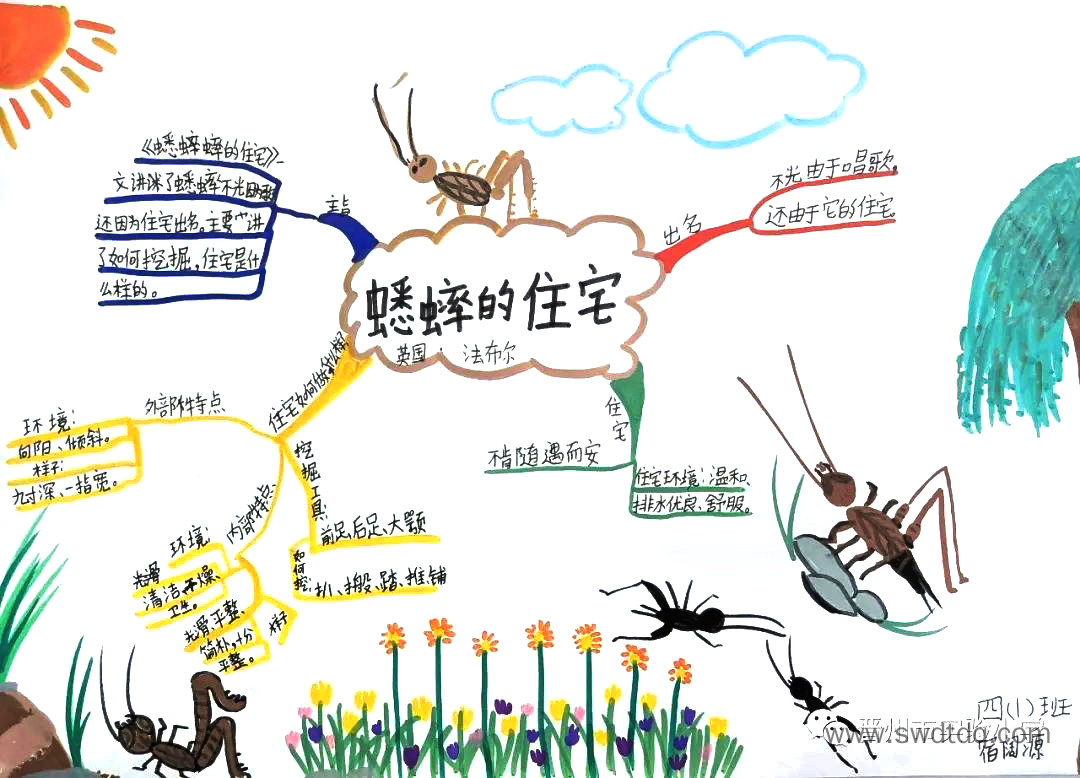 蟋蟀的住宅
英国：法布尔
《蟋蟀的住宅》
还因为住宅出名。主要讲
了如何挖掘，住宅是什
么样的。
出名
不光由于唱歌，
还由于它的住宅。
住宅
不肯随遇而安
住宅环境：温和、
排水优良、舒服。
外部特点
环境：
向阳、倾斜。
样子：
九寸深、一指宽。
挖掘工具：
前足、后足、大颚
如何挖：
扒、搬、踏、推、铺
内部特点
环境：
光滑
清洁、干燥、
卫生。
样子
光滑平整、
简朴，十分
平整。
四(1)班
www.swdtdq.com